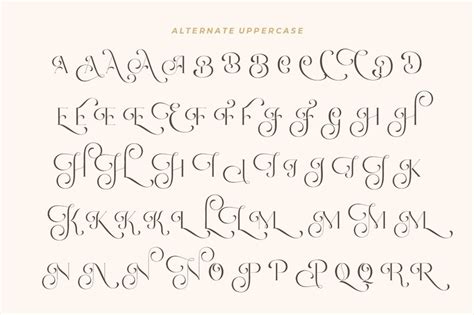 ALTERNATE UPPERCASE
A A A A A B B C C C D D
E E E E E F F F G G H H
H H H H I I I J I J J K
K K K K L L L M M M M
N N N N O P P P Q R R R